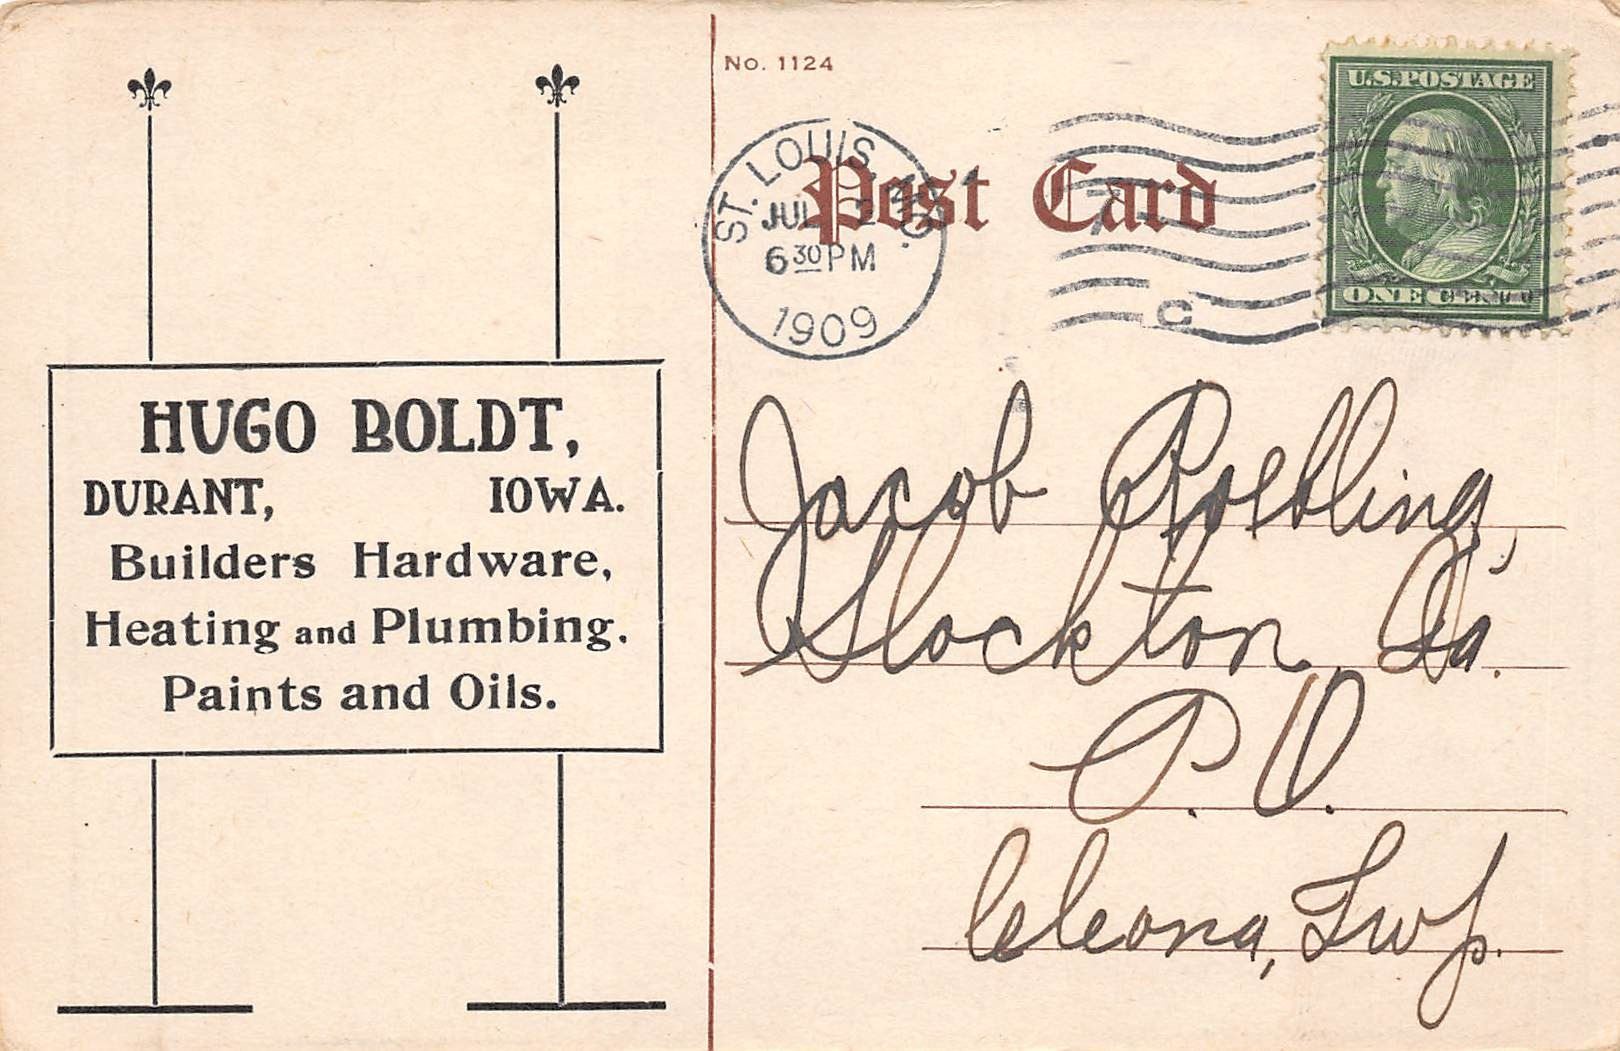 HUGO BOLDT,
DURANT, IOWA.
Builders Hardware,
Heating and Plumbing.
Paints and Oils.
No. 1124
Post Card
ST. LOUIS, MO.
JUL
6 30 PM
1909
C
U.S. POSTAGE
ONE CENT
Jacob Roebling,
Stockton, Ia.
P. O.
Cleona, Twp.